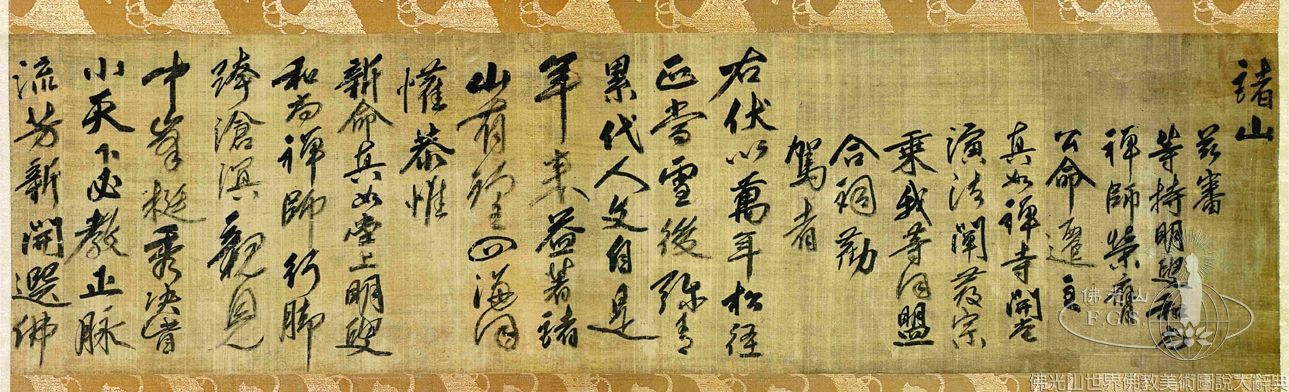 諸山
茲審
等持明叟和尚
禪師榮膺
公命遷主
真如禪寺開堂
演法闡發宗
乘我等同盟
合詞勸
駕者
右伏以萬年松徑
正當雪後弥青
累代人文自是
年來益著諸
山有四海同
懽恭惟
新命真如堂上明叟
和尚禪師行脚
跨滄溟親見
中峯挺秀决眥
小天下必教正脉
流芳新開選佛
佛光山
F.G.S.
佛光山世界佛教美術圖說大辭典